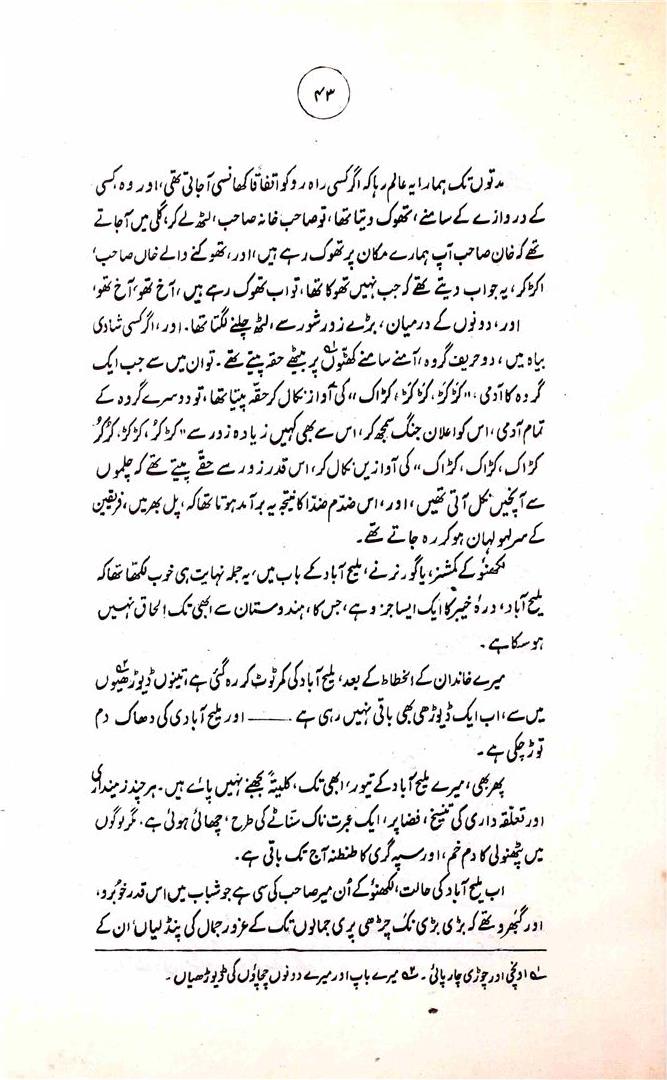 ۴۳
مدتوں تک ہمارا یہ عالم رہا کہ اگر کسی راہ رو کو اتفاقاً کھانسی آجاتی تھی، اور وہ کسی
کے دروازے کے سامنے، تھوک دیتا تھا، تو صاحب خانہ صاحب، لٹھ لے کر، گلی میں آجاتے
تھے کہ خان صاحب آپ ہمارے مکان پر تھوک رہے ہیں، اور، تھوکنے والے خاں صاحب،
اکڑ کر، یہ جواب دیتے تھے کہ جب نہیں تھوکا تھا، تو اب تھوک رہے ہیں، آخ تھو، آخ تھو،
اور، دونوں کے درمیان، بڑے زور شور سے، لٹھ چلنے لگتا تھا۔ اور، اگر کسی شادی
بیاہ میں، دو حریف گروہ، آمنے سامنے کھٹوں۱؎ پر بیٹھے حقہ پیتے تھے۔ تو ان میں سے جب ایک
گروہ کا آدمی، "کڑ کڑ، کڑ کڑ، کڑاک" کی آواز نکال کر حقّہ پیتا تھا، تو دوسرے گروہ کے
تمام آدمی، اس کو اعلان جنگ سمجھ کر، اس سے بھی کہیں زیادہ زور سے "کڑ کڑ، کڑ کڑ، کڑ کڑ
کڑاک، کڑاک، کڑاک" کی آوازیں نکال کر، اس قدر زور سے حقّے پیتے تھے کہ چلموں
سے آنچیں نکل آتی تھیں، اور، اس ضدّم ضدّا کا نتیجہ یہ برآمد ہوتا تھا کہ، پل بھر میں، فریقین
کے سر لہولہان ہو کر رہ جاتے تھے۔
لکھنؤ کے کمشنر، یا گورنر نے، ملیح آباد کے باب میں، یہ جملہ نہایت ہی خوب لکھا تھا کہ
ملیح آباد، درۂ خیبر کا ایک ایسا جزو ہے، جس کا، ہندوستان سے ابھی تک الحاق نہیں
ہو سکا ہے۔
میرے خاندان کے انحطاط کے بعد، ملیح آباد کی کمر ٹوٹ کر رہ گئی ہے، تینوں ڈیوڑھیوں۲؎
میں سے، اب ایک ڈیوڑھی بھی باقی نہیں رہی ہے ——— اور ملیح آبادی کی دھاک دم
توڑ چکی ہے۔
پھر بھی، میرے ملیح آباد کے تیور، ابھی تک، کلیتہً بجھنے نہیں پائے ہیں۔ ہر چند زمینداری
اور تعلّقہ داری کی تنسیخ، فضا پر، ایک عبرت ناک سنّاٹے کی طرح، چھائی ہوئی ہے، مگر لوگوں
میں پٹھنولی کا دم خم، اور سپہ گری کا طنطنہ آج تک باقی ہے۔
اب ملیح آباد کی حالت، لکھنؤ کے اُن میر صاحب کی سی ہے جو شباب میں اس قدر خوبرو،
اور گبھرو تھے کہ بڑی بڑی نک چڑھی پری جمالوں تک کے غرور جمال کی پنڈلیاں، ان کے
۱؎ اونچی اور چوڑی چارپائی۔ ۲؎ میرے باپ اور میرے دونوں چچاؤں کی ڈیوڑھیاں۔